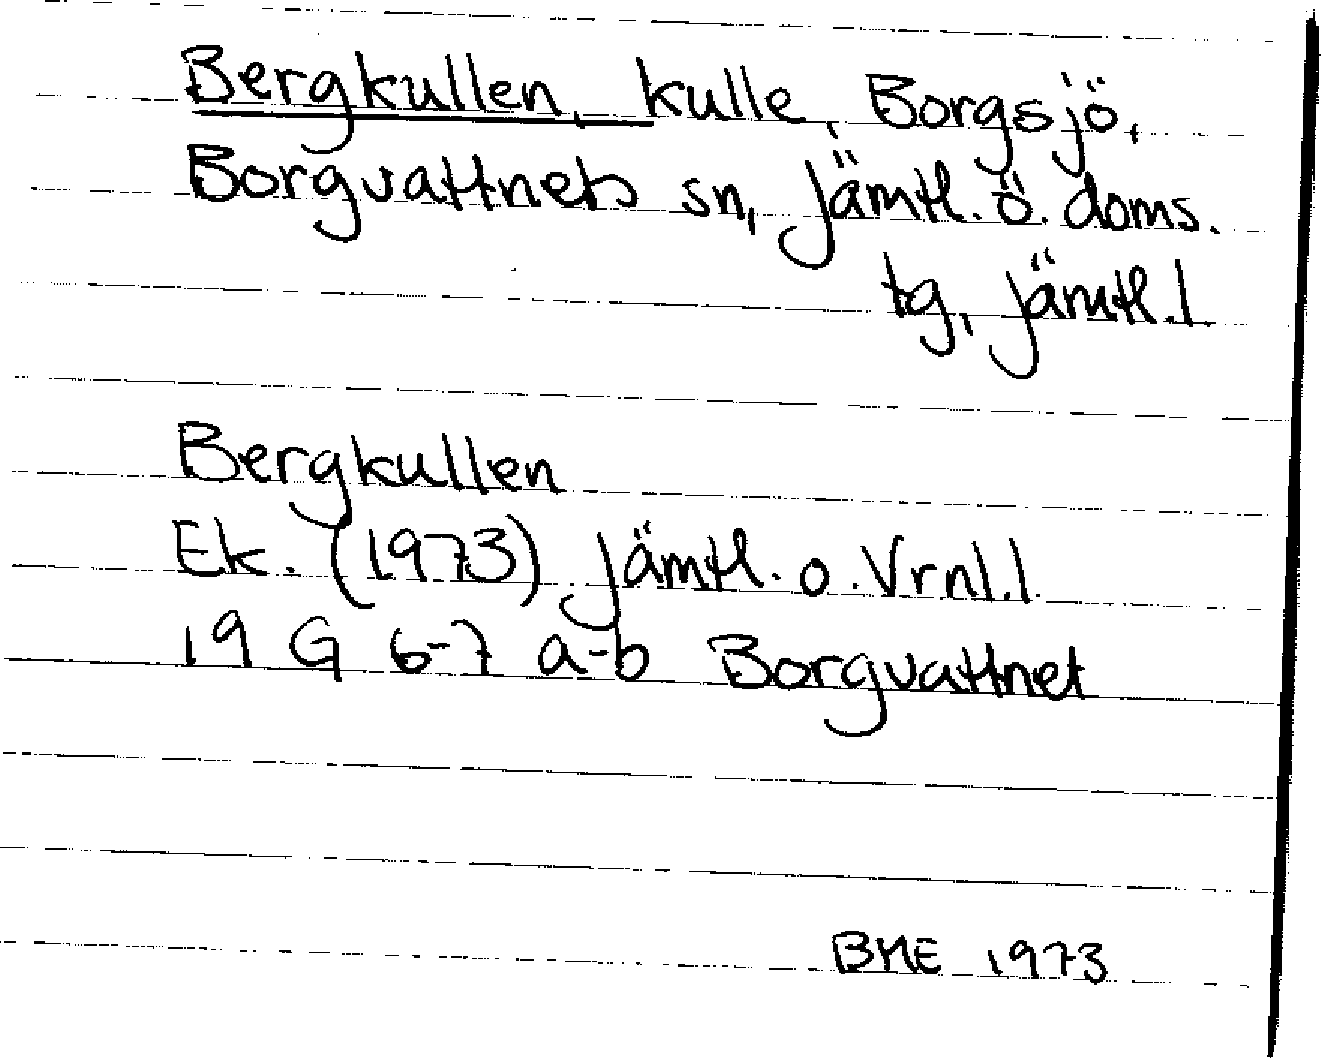 Bergkullen, kulle, Borgsjö,
Borgvattnets sn, Jämtl. ö. doms.
tg, Jämtl. l.
Bergkullen
Ek. (1973) Jämtl. o. Vrnl. l.
19 G 6-7 a-b Borgvattnet
BME 1973